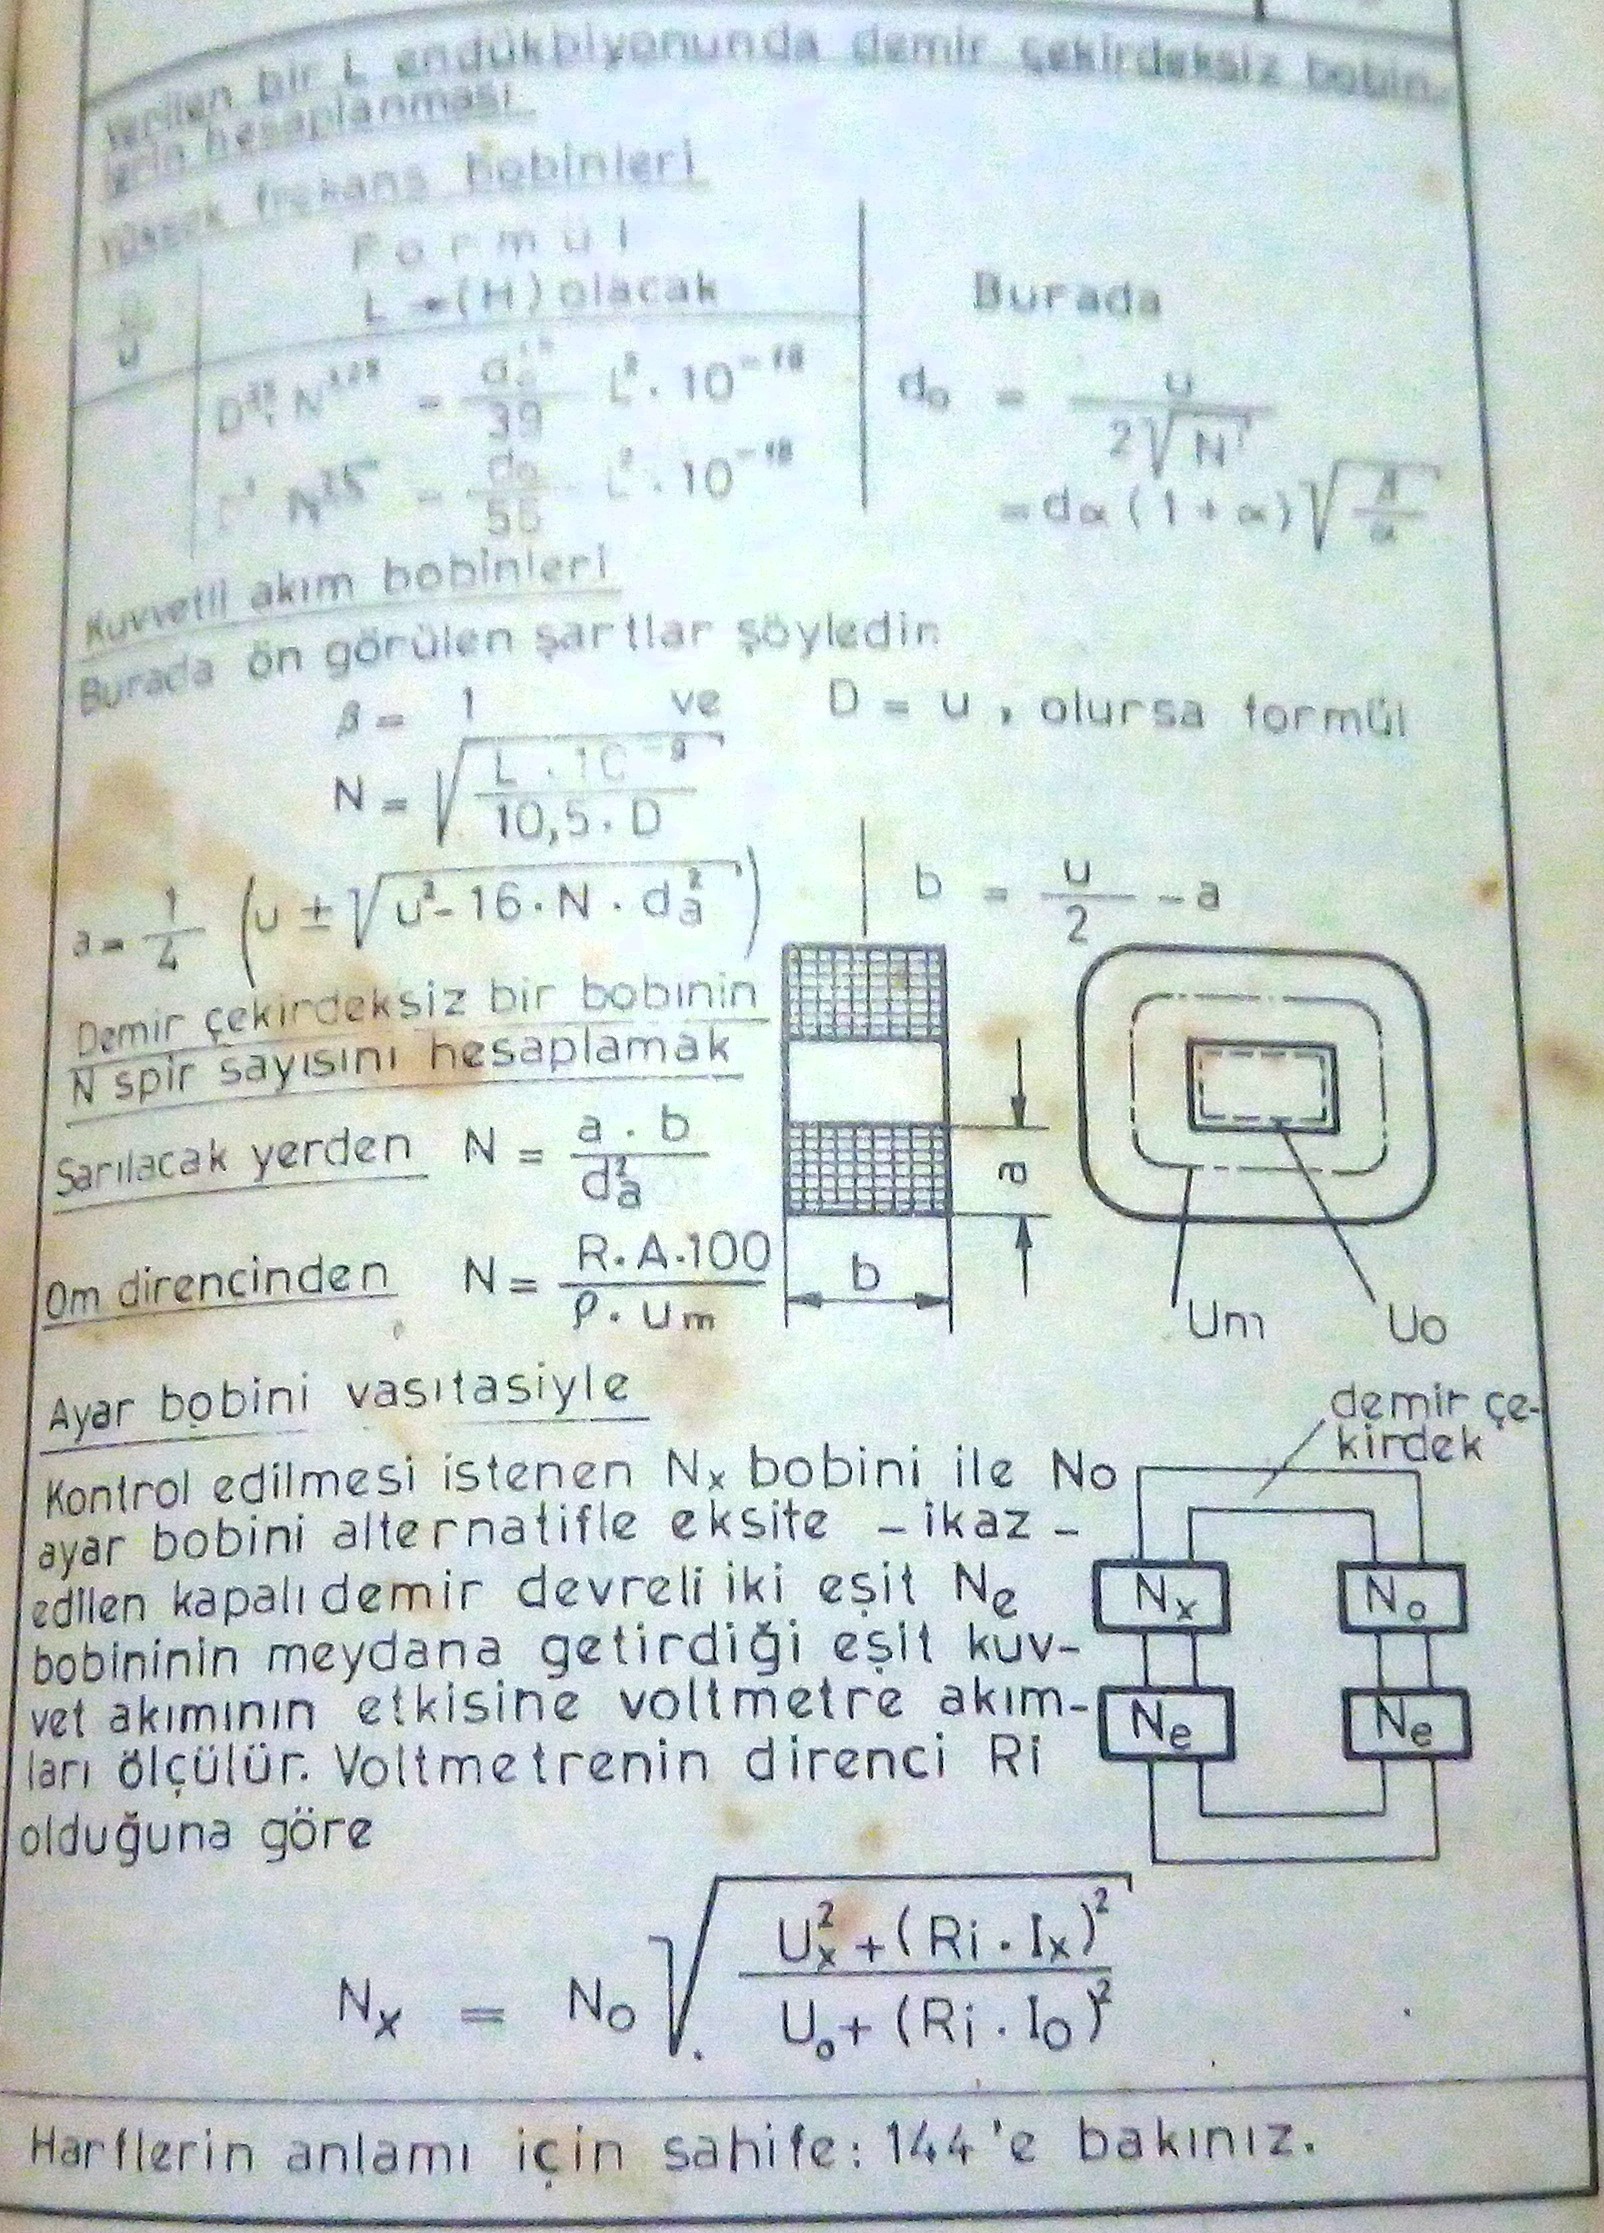 Verilen bir L endükbiyonunda demir çekirdeksiz bobin-
lerin hesaplanması
Yüksek frekans bobinleri
Formül
L → (H) olacak
Burada
u
39 L² . 10⁻¹⁸
d₀ = u / 2√N
55 L² . 10⁻¹⁸
= dα (1 + α) √
Kuvvetli akım bobinleri
Burada ön görülen şartlar şöyledir
β = 1 ve D = u , olursa formül
N = √(L . 10⁻⁹ / 10,5 . D)
a = 1/4 (u ± √(u² - 16 . N . da²))
b = u/2 - a
Demir çekirdeksiz bir bobinin
N spir sayısını hesaplamak
Sarılacak yerden N = a . b / da²
Om direncinden N = R . A . 100 / ρ . Um
a
b
Um
Uo
Ayar bobini vasıtasiyle
demir çe-
kirdek
Kontrol edilmesi istenen Nx bobini ile No
ayar bobini alternatifle eksite - ikaz -
edilen kapalı demir devreli iki eşit Ne
bobininin meydana getirdiği eşit kuv-
vet akımının etkisine voltmetre akım-
ları ölçülür. Voltmetrenin direnci Ri
olduğuna göre
Nx
No
Ne
Ne
Nx = No √(Ux² + (Ri . Ix)² / Uo + (Ri . Io)²)
Harflerin anlamı için sahife: 144'e bakınız.